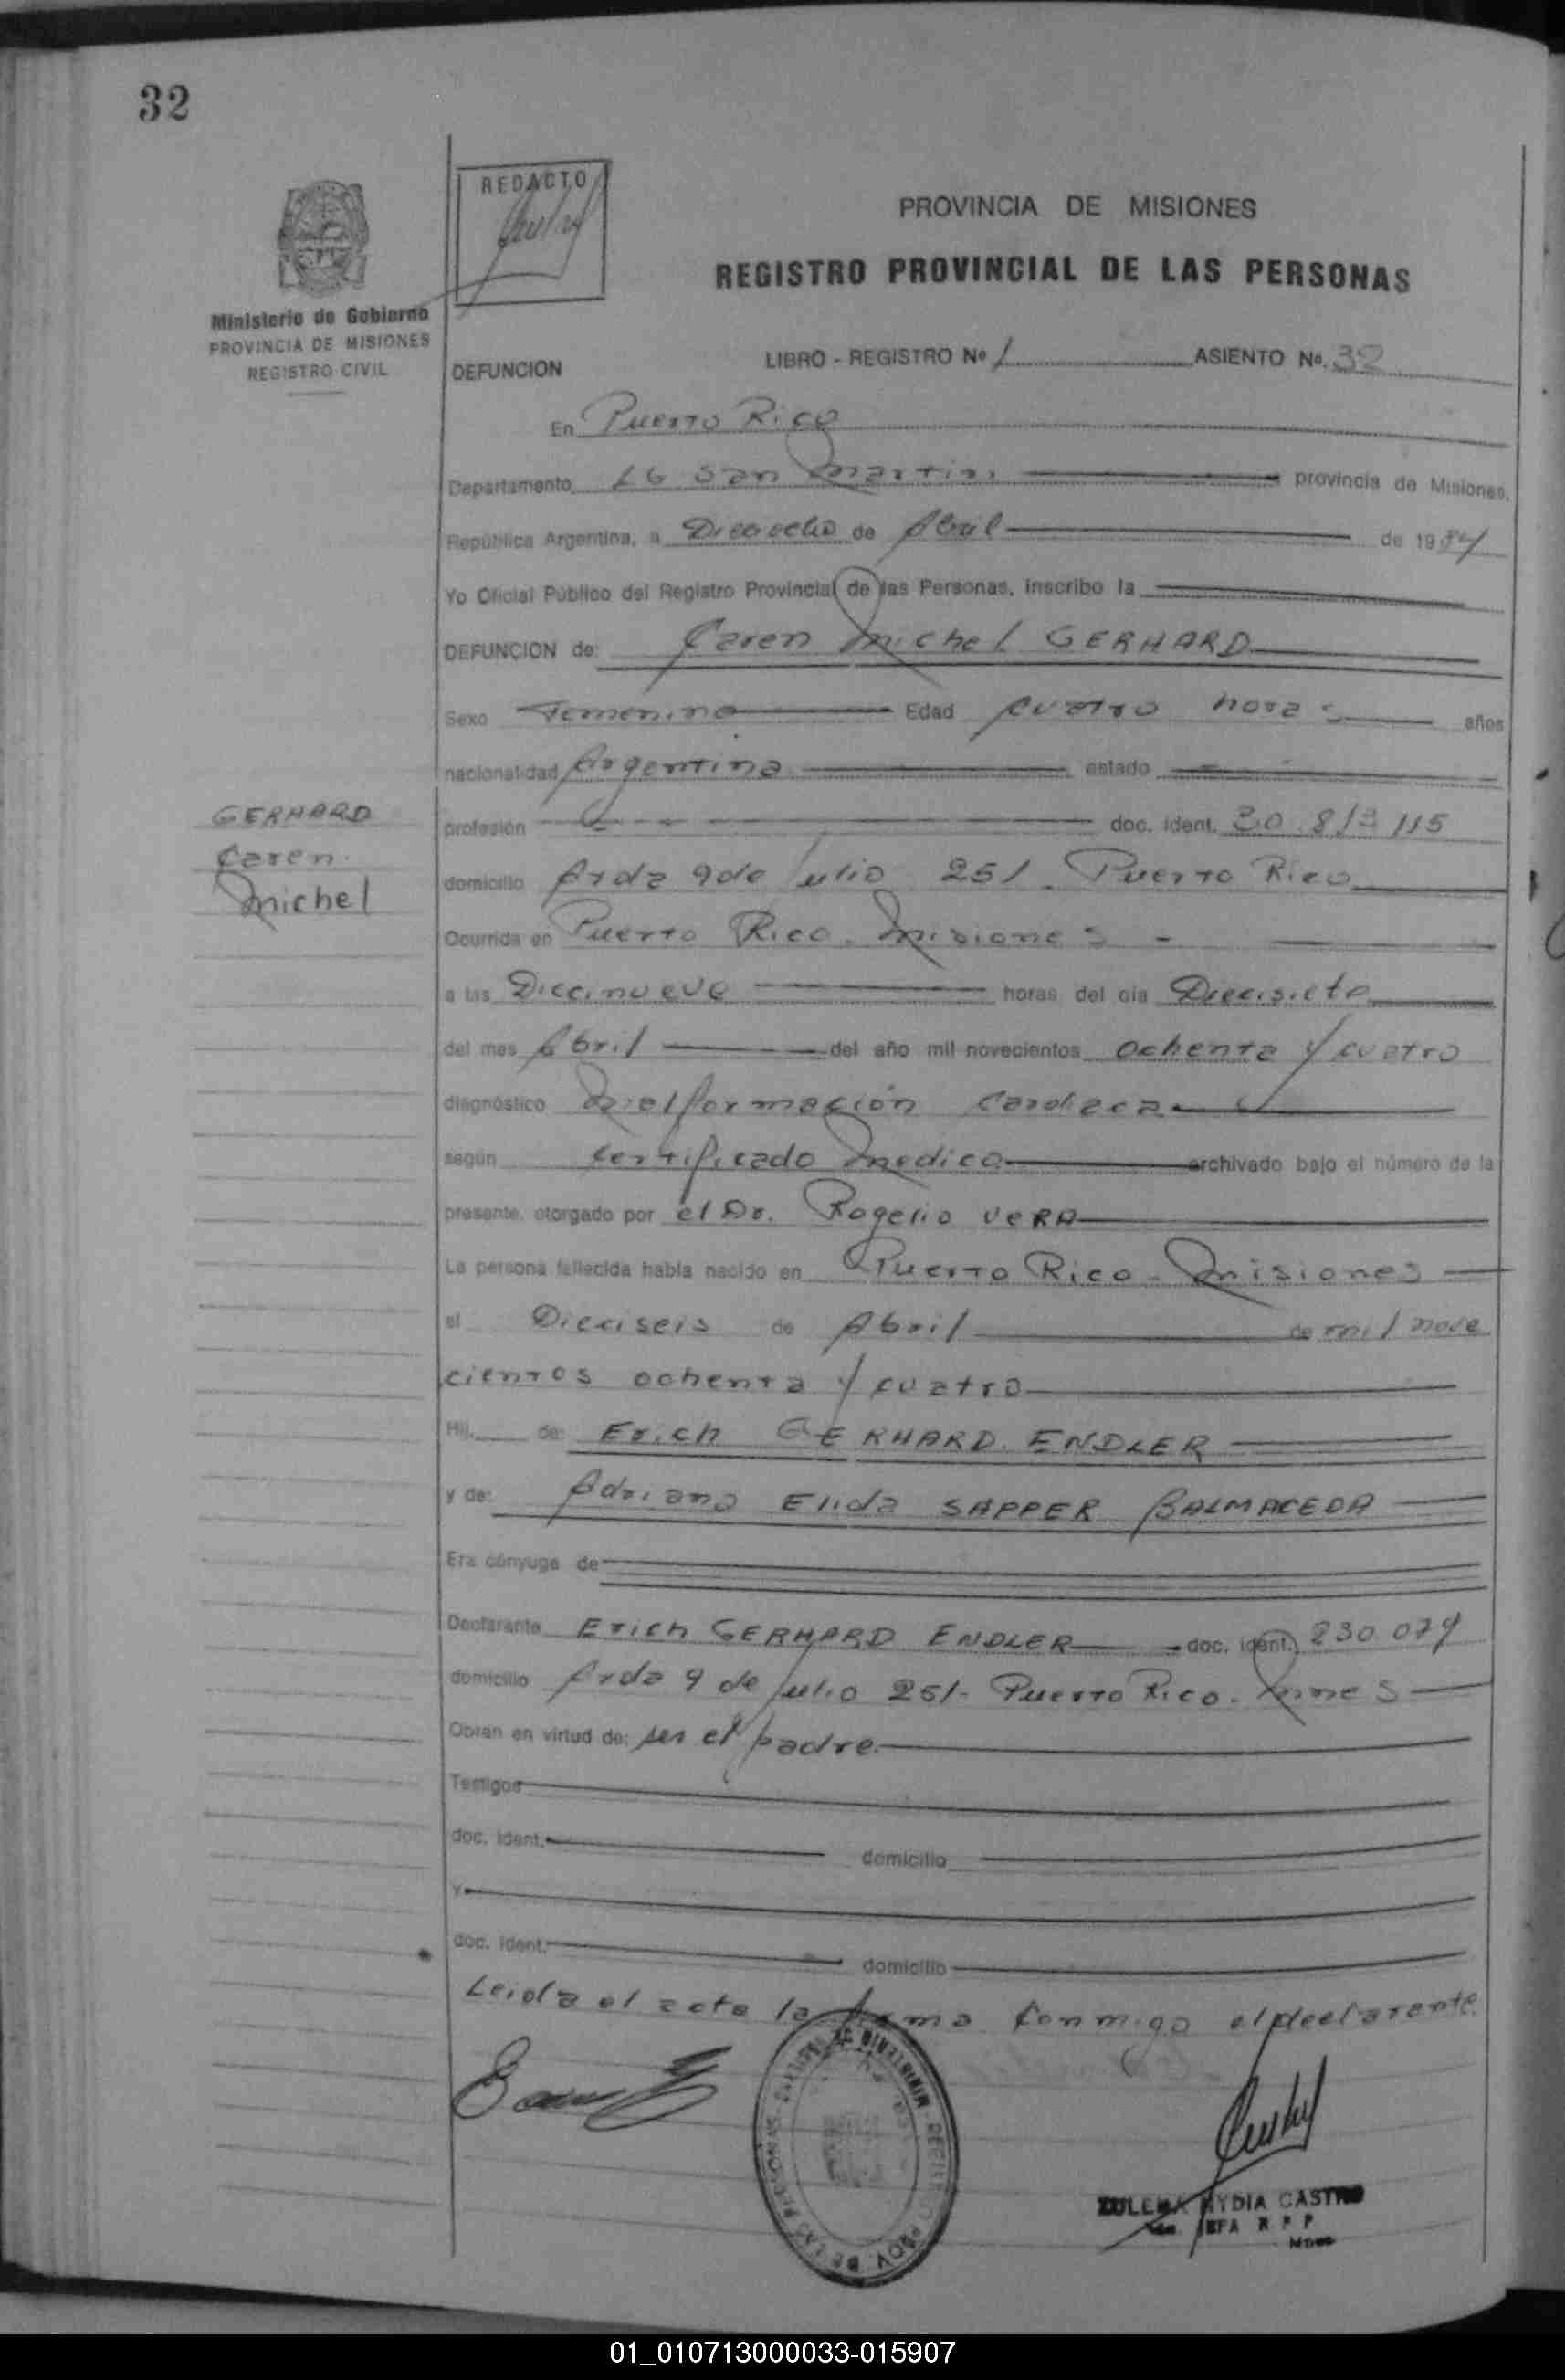 32
REDACTO
PROVINCIA DE MISIONES
REGISTRO PROVINCIAL DE LAS PERSONAS
Ministerio de Gobierno
PROVINCIA DE MISIONES
REGISTRO CIVIL
DEFUNCION
LIBRO - REGISTRO Nº 1 ASIENTO Nº. 32
En Puerto Rico
Departamento LG San Martin provincia de Misiones,
República Argentina, a Dieciocho de Abril de 1984
Yo Oficial Público del Registro Provincial de las Personas, inscribo la
DEFUNCION de: Caren Michel GERHARD
Sexo Femenino Edad cuatro horas años
nacionalidad Argentina estado
GERHARD
Caren
Michel
profesión doc. ident. 30.813.115
domicilio Avda 9 de Julio 251. Puerto Rico
Ocurrida en Puerto Rico. Misiones -
a las Diecinueve horas del día Diecisiete
del mes Abril del año mil novecientos ochenta y cuatro
diagnóstico Malformación Cardiaca
según Certificado Medico archivado bajo el número de la
presente, otorgado por el Dr. Rogelio VERA
La persona fallecida había nacido en Puerto Rico - Misiones
el Dieciseis de Abril de mil nove
cientos ochenta y cuatro
Hij de: Erich GERHARD ENDLER
y de: Adriana Elida SAPPER BALMACEDA
Era cónyuge de
Declarante Erich GERHARD ENDLER doc. ident. 230.079
domicilio Avda 9 de Julio 251- Puerto Rico - Mnes
Obran en virtud de: ser el padre.
Testigos
doc. ident. domicilio
Y
doc. ident. domicilio
Leida el acta la firma conmigo el declarante.
ZULEMA NYDIA CASTRO
JEFA R P P
Mnes
01_010713000033-015907